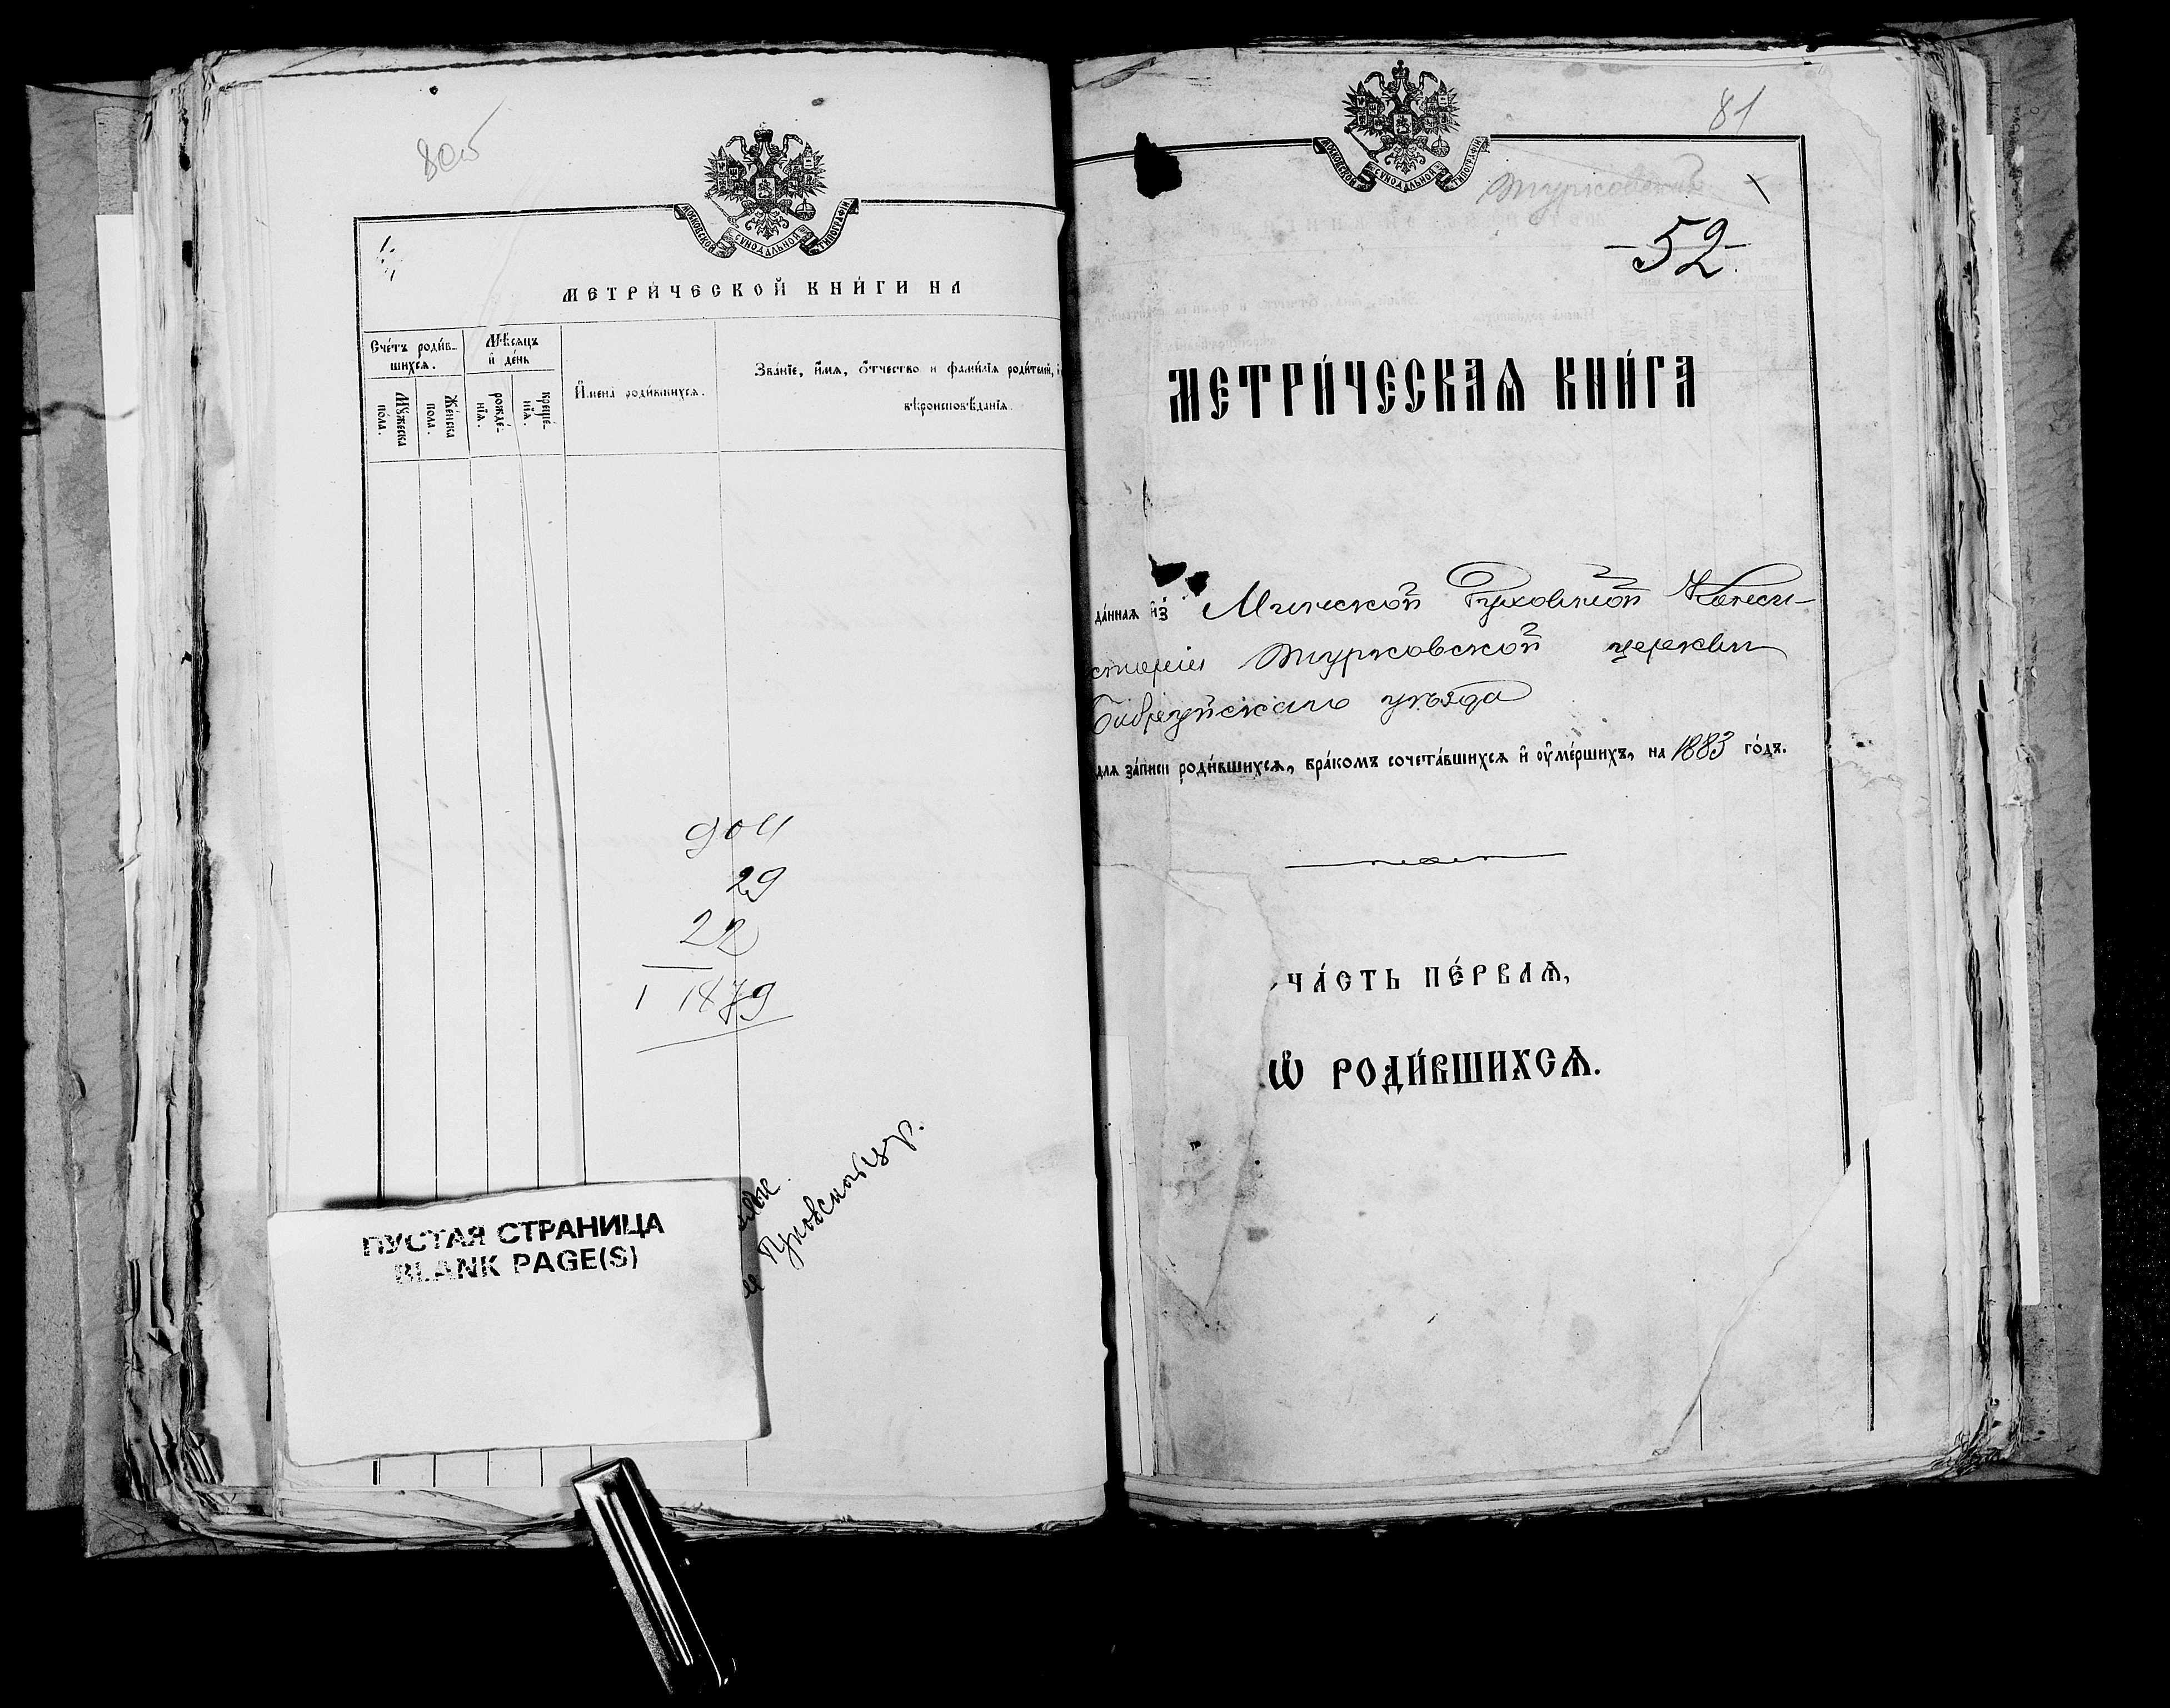 80об
МОСКОВСКОЙ СѴНОДАЛЬНОЙ ТИПОГРАФІИ
МЕТРИ́ЧЕСКОЙ КНИ́ГИ НА
Сче́тъ роди́в-
шихсѧ.
Мѣ́сѧцъ
и҆ де́нь
Мꙋ́жеска
по́ла.
Же́нска
по́ла.
рожде́-
нїѧ.
креще́-
нїѧ.
И҆мена̀ роди́вшихсѧ.
Зва́нїе, и҆́мѧ, ѻ҆́тчество и фами́лїѧ роди́телей,
вѣроисповѣ́данїѧ.
904
29
22
1479
Пуковской цр.
ПУСТАЯ СТРАНИЦА
BLANK PAGE(S)
81
МОСКОВСКОЙ СѴНОДАЛЬНОЙ ТИПОГРАФІИ
Турковской
-52-
МЕТРИ́ЧЕСКАѦ КНИ́ГА
да́ннаѧ и҆з̾ Минской Духовной Конси-
сторіи Турковской церкви
Бобруйскаго уѣзда
для за́писи роди́вшихсѧ, бра́комъ сочета́вшихсѧ и҆ ᲂу҆ме́ршихъ, на 1883 го́дъ.
ЧА́СТЬ ПЕ́РВАѦ,
Ѽ РОДИ́ВШИХСѦ.